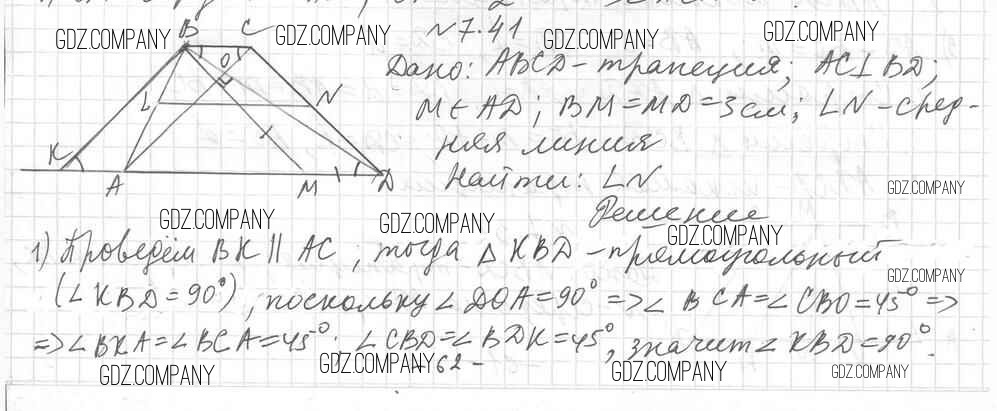 №7.41
Дано: ABCD – трапеция; AC⊥BD;
M∈AD; BM=MD=3см; LN – сред-
няя линия
Найти: LN
Решение
1) Проведём BK || AC, тогда △KBD – прямоугольный
(∠KBD=90°), поскольку ∠DOA=90° => ∠BCA=∠CBO=45° =>
=> ∠BKA=∠BCA=45°. ∠CBD=∠BDK=45°, значит ∠KBD=90°.
- 62 -
B C
O
L N
K A M D
GDZ.COMPANY GDZ.COMPANY GDZ.COMPANY GDZ.COMPANY
GDZ.COMPANY
GDZ.COMPANY GDZ.COMPANY GDZ.COMPANY
GDZ.COMPANY
GDZ.COMPANY GDZ.COMPANY GDZ.COMPANY GDZ.COMPANY